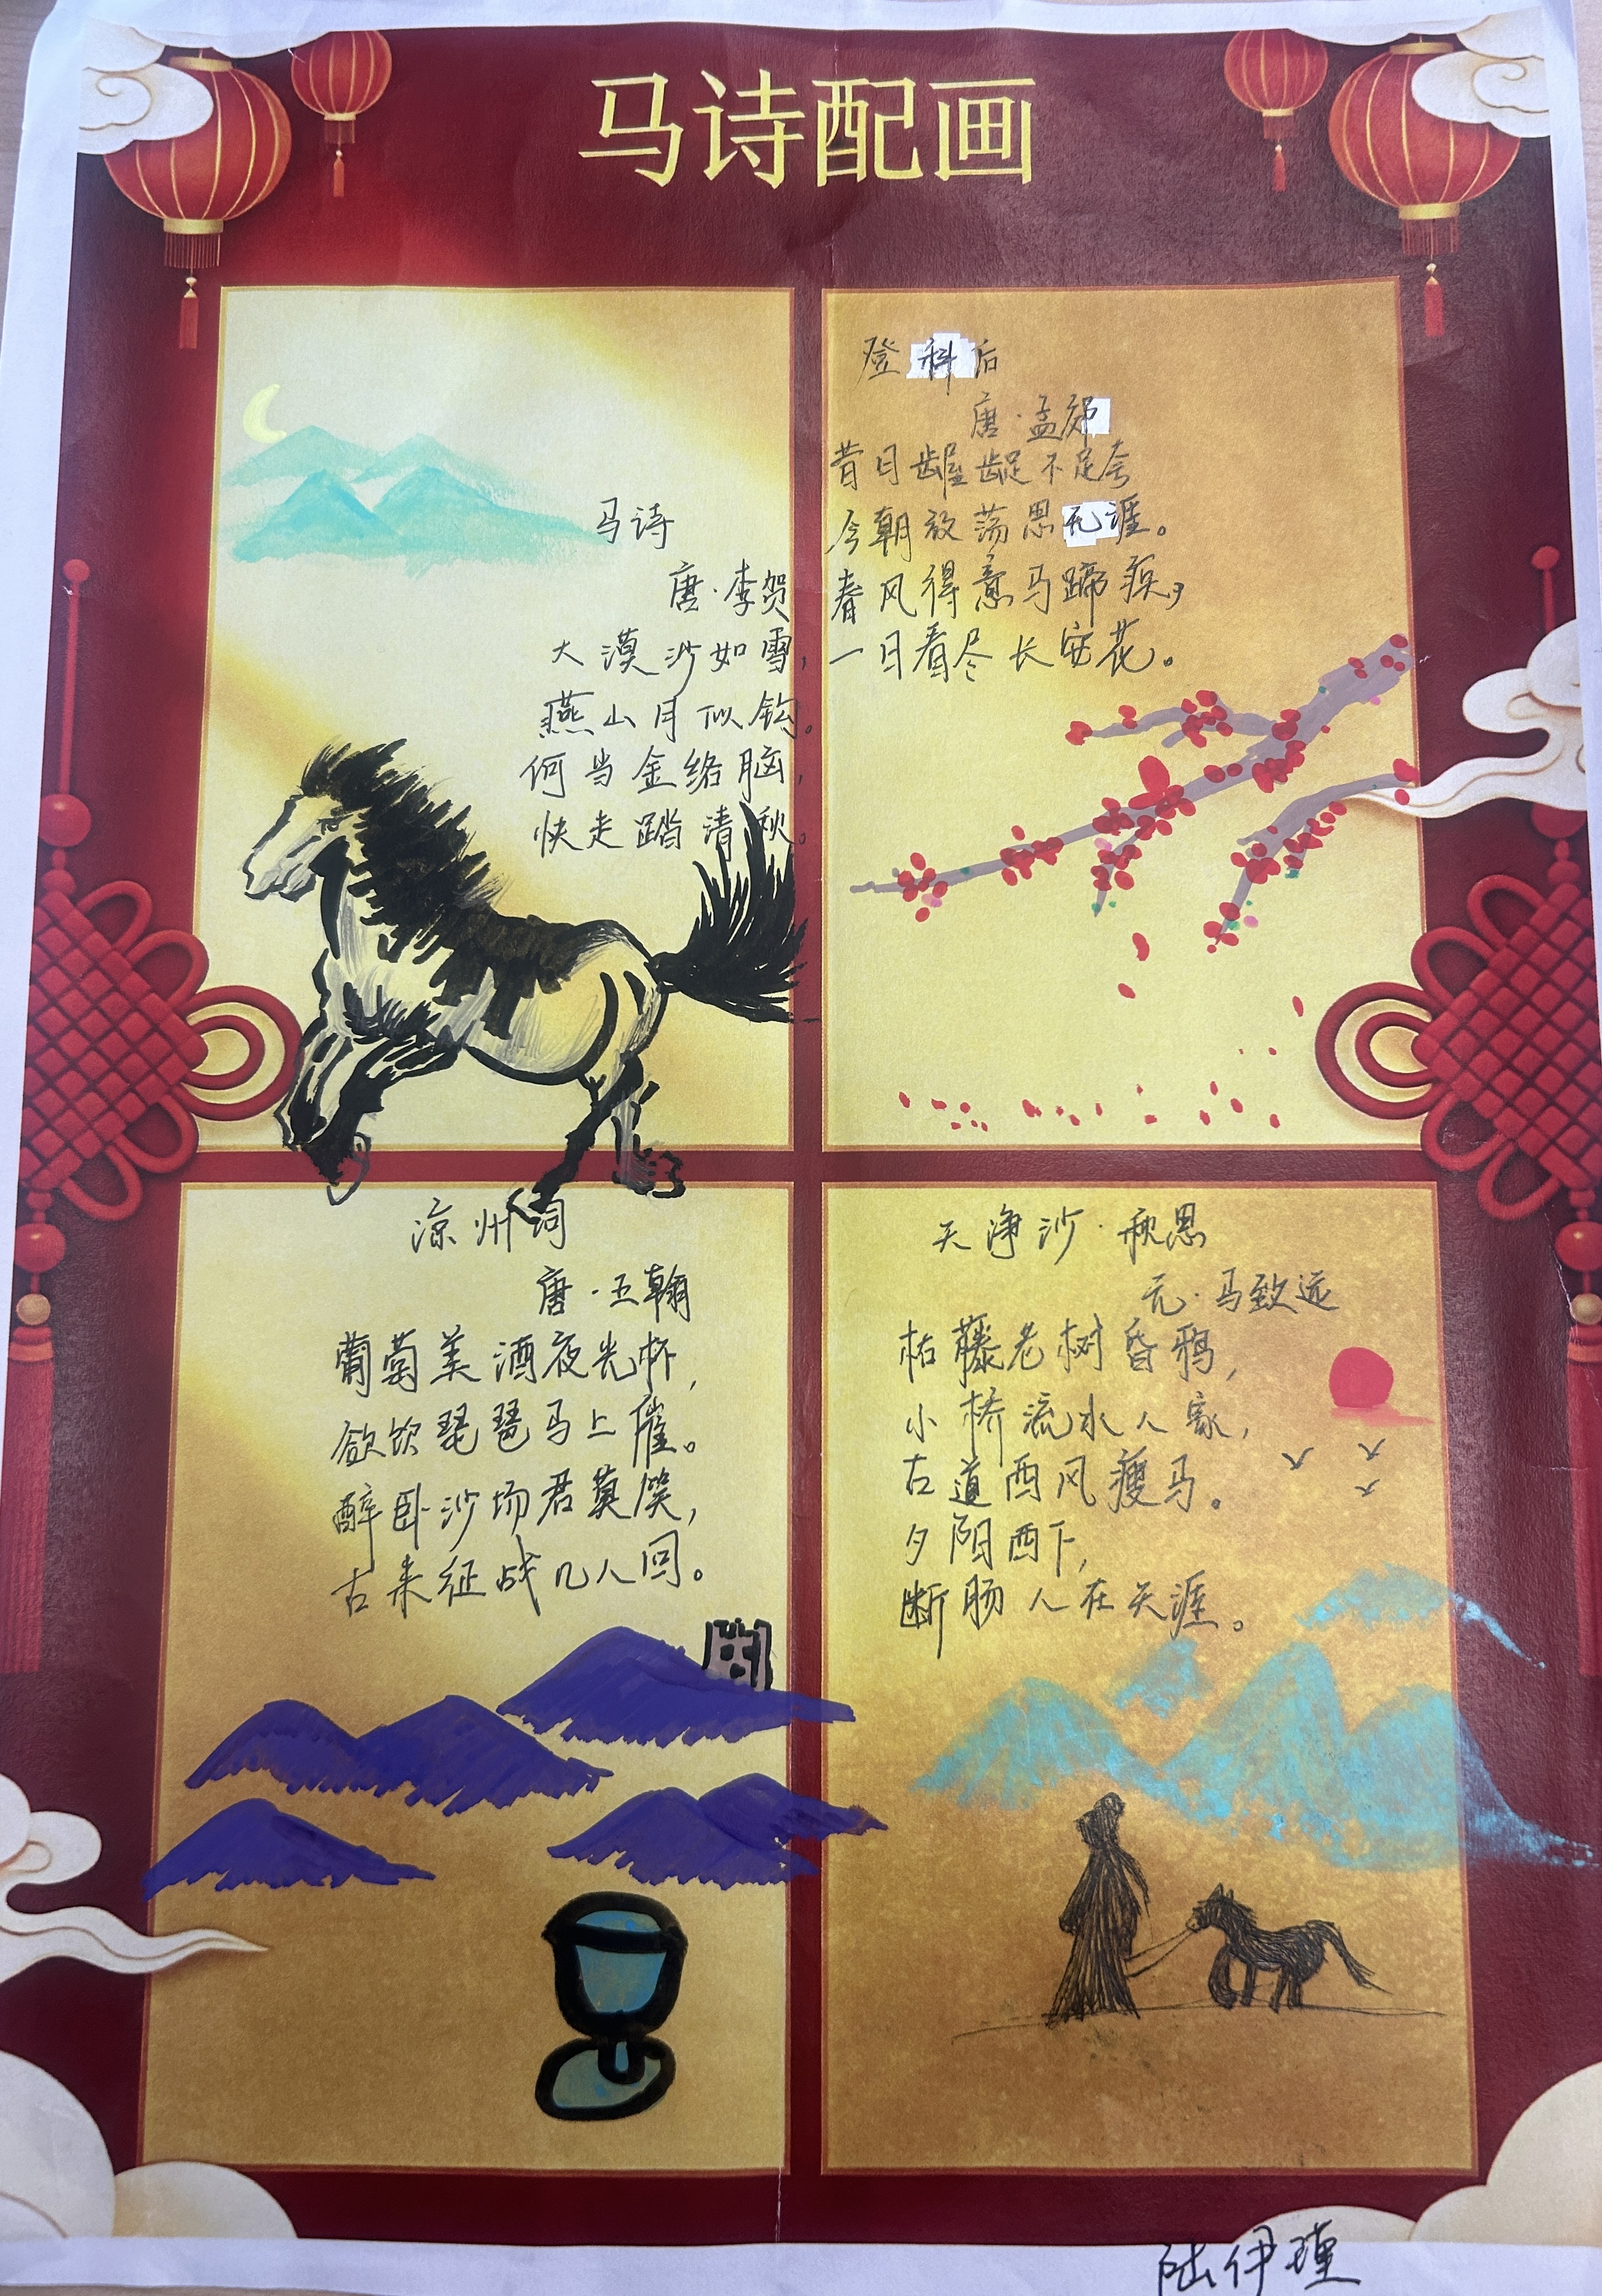 马诗配画
马诗
唐·李贺
大漠沙如雪，
燕山月似钩。
何当金络脑，
快走踏清秋。
登科后
唐·孟郊
昔日龌龊不足夸
今朝放荡思无涯。
春风得意马蹄疾，
一日看尽长安花。
凉州词
唐·王翰
葡萄美酒夜光杯，
欲饮琵琶马上催。
醉卧沙场君莫笑，
古来征战几人回。
天净沙·秋思
元·马致远
枯藤老树昏鸦，
小桥流水人家，
古道西风瘦马。
夕阳西下，
断肠人在天涯。
陆伊瑾